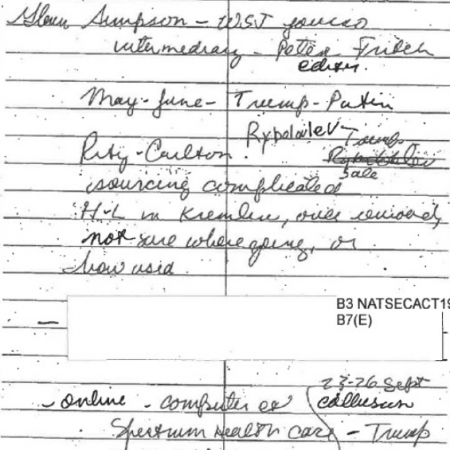 Glenn Simpson - WSJ
intermediary - Peter Fritsch
editor.
May-June - Trump-Putin
Rybolovlev - Trump
Ritz-Carlton.
sale
sourcing complicated
H-L in Kremlin, once removed,
not sure where going, or
how used
B3 NATSECACT19
B7(E)
23-26 Sept
- online - computer co collusion
Spectrum Health Care - Trump